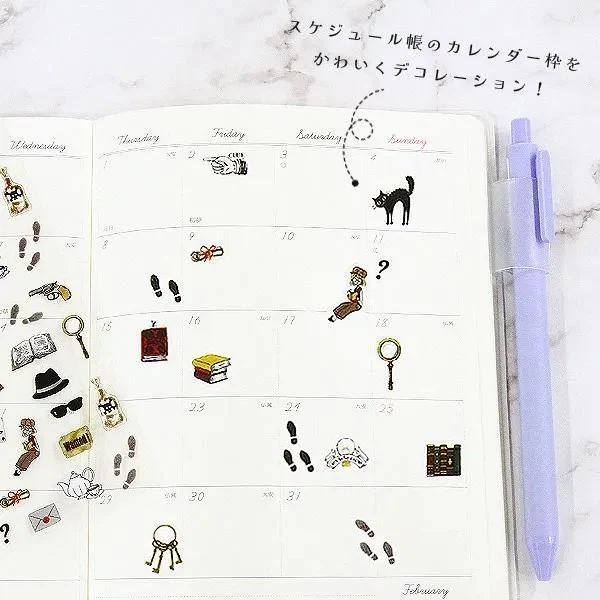 スケジュール帳のカレンダー枠を
かわいくデコレーション！
Wednesday Thursday Friday Saturday Sunday
1 2 3 4
CLUB
8 9 10 11
?
15 16 17 18
Wanted!
23 24 25
29 30 31
?
February